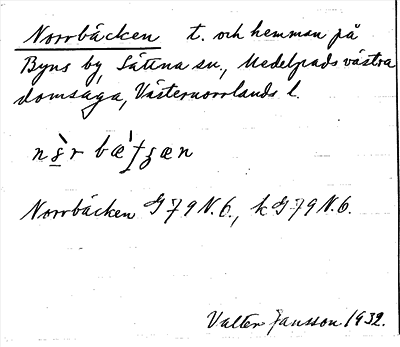 Norrbäcken t. och hemman på
Byns by, Sättna sn., Medelpads västra
domsaga, Västernorrlands l.
Norrbäcken G 79 N. 6., k G 79 N. 6.
Valter Jansson 1932.